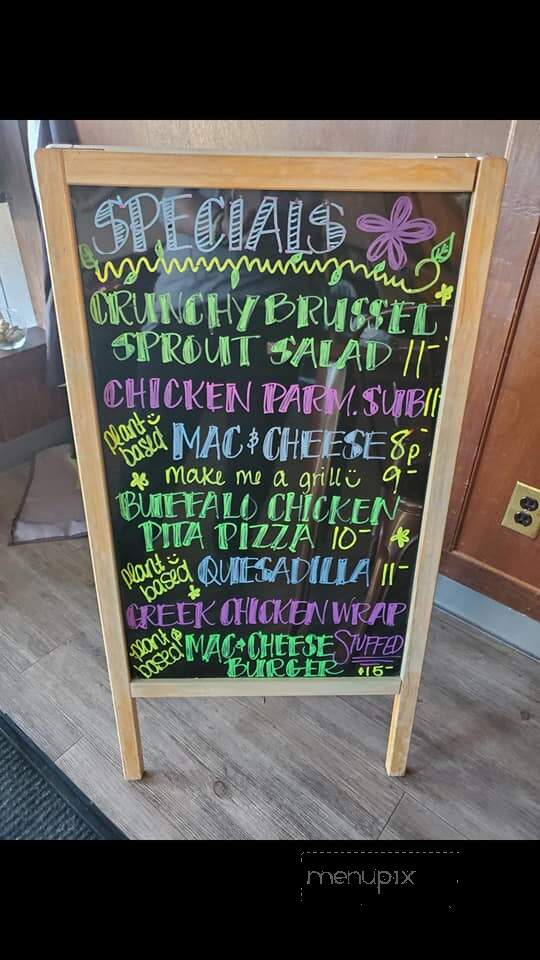 SPECIALS
CRUNCHY BRUSSEL
SPROUT SALAD 11-
CHICKEN PARM. SUB 11
plant based MAC & CHEESE 8-
make me a grill 9-
BUFFALO CHICKEN
PITA PIZZA 10-
plant based QUESADILLA 11-
GREEK CHICKEN WRAP
plant based! MAC & CHEESE STUFFED
BURGER $15-
menupix